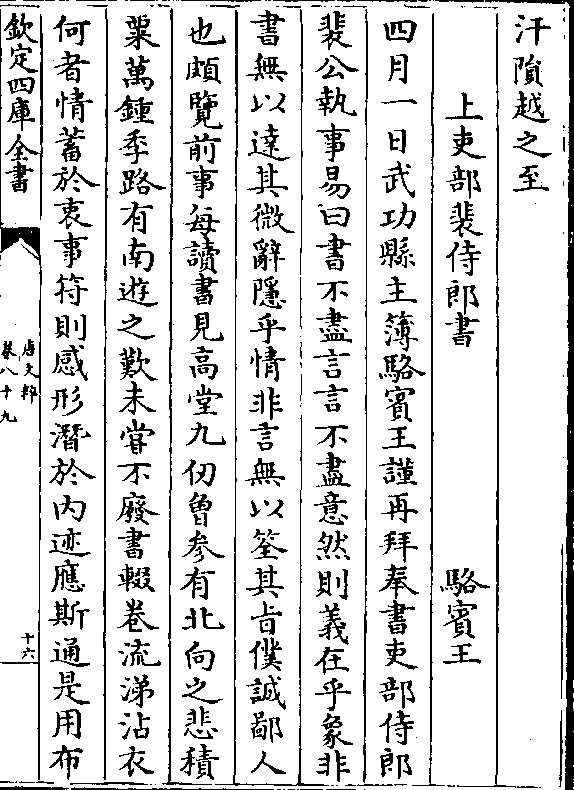 汗隕越之至
上吏部裴侍郎書 駱賓王
四月一日武功縣主簿駱賓王謹再拜奉書吏部侍郎
裴公執事易曰書不盡言言不盡意然則義在乎象非
書無以達其微辭隱乎情非言無以筌其旨僕誠鄙人
也頗覽前事每讀書見高堂九仞曾参有北向之悲積
粟萬鍾季路有南遊之歎未甞不廢書輟卷流涕沾衣
何者情蓄於衷事符則感形潛於内迹應斯通是用布
欽定四庫全書
唐文粹
卷八十九
十六